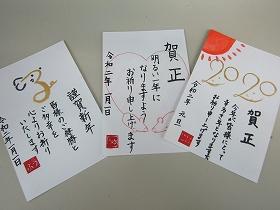 謹賀新年
皆様のご健勝と
ご多幸を
心よりお祈り
いたします
令和二年一月一日
賀正
明るい一年に
なりますよう
お祈り申し上げます
令和二年一月一日
2020
賀正
今年が皆様にとって
幸多き年となりますよう
お祈り申し上げます
令和二年 元旦